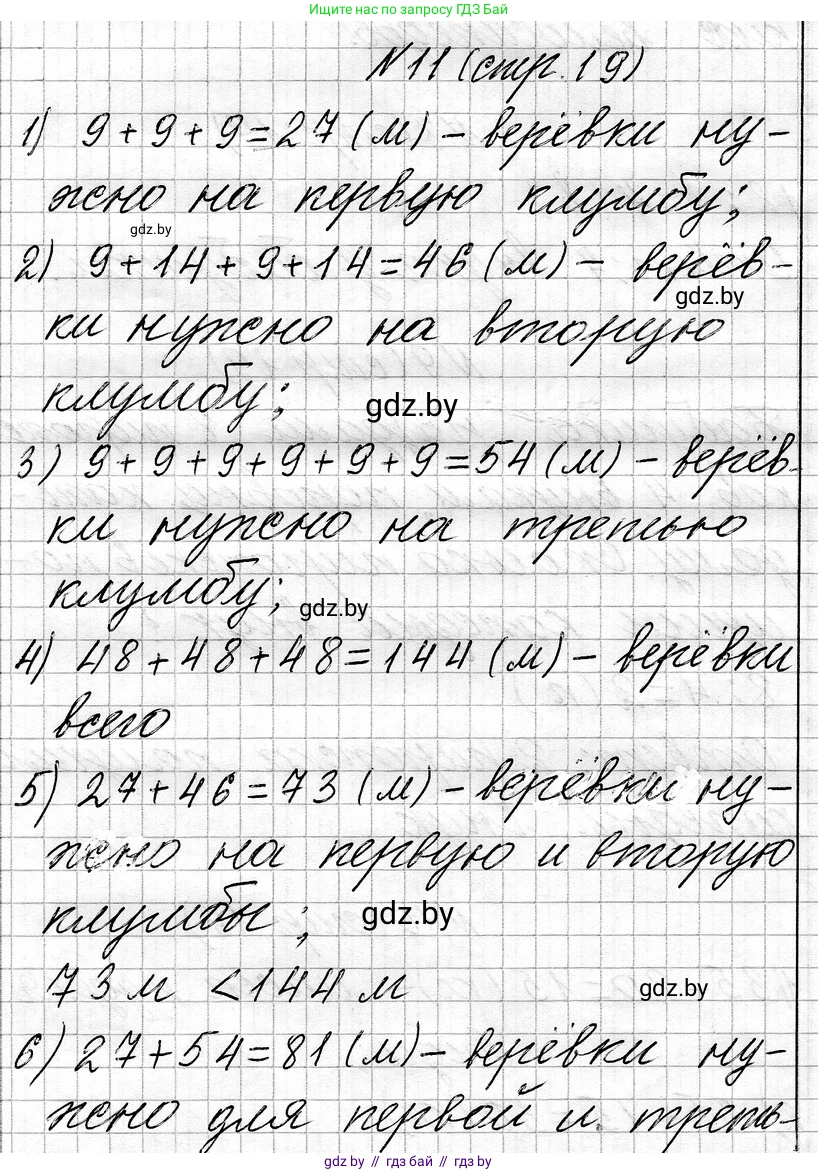 Ищите нас по запросу ГДЗ Бай
N11 (стр. 19)
1) 9+9+9=27 (м) – верёвки ну-
жно на первую клумбу;
gdz.by
2) 9+14+9+14=46 (м) – верёв-
gdz.by
ки нужно на вторую
клумбу;
gdz.by
3) 9+9+9+9+9+9=54 (м) – верёв-
ки нужно на третью
клумбу;
gdz.by
4) 48+48+48=144 (м) – верёвки
всего
5) 27+46=73 (м) – верёвки ну-
жно на первую и вторую
клумбы;
gdz.by
73 м < 144 м
gdz.by
6) 27+54=81 (м) – верёвки ну-
жно для первой и треть-
gdz.by // гдз бай // gdz.by